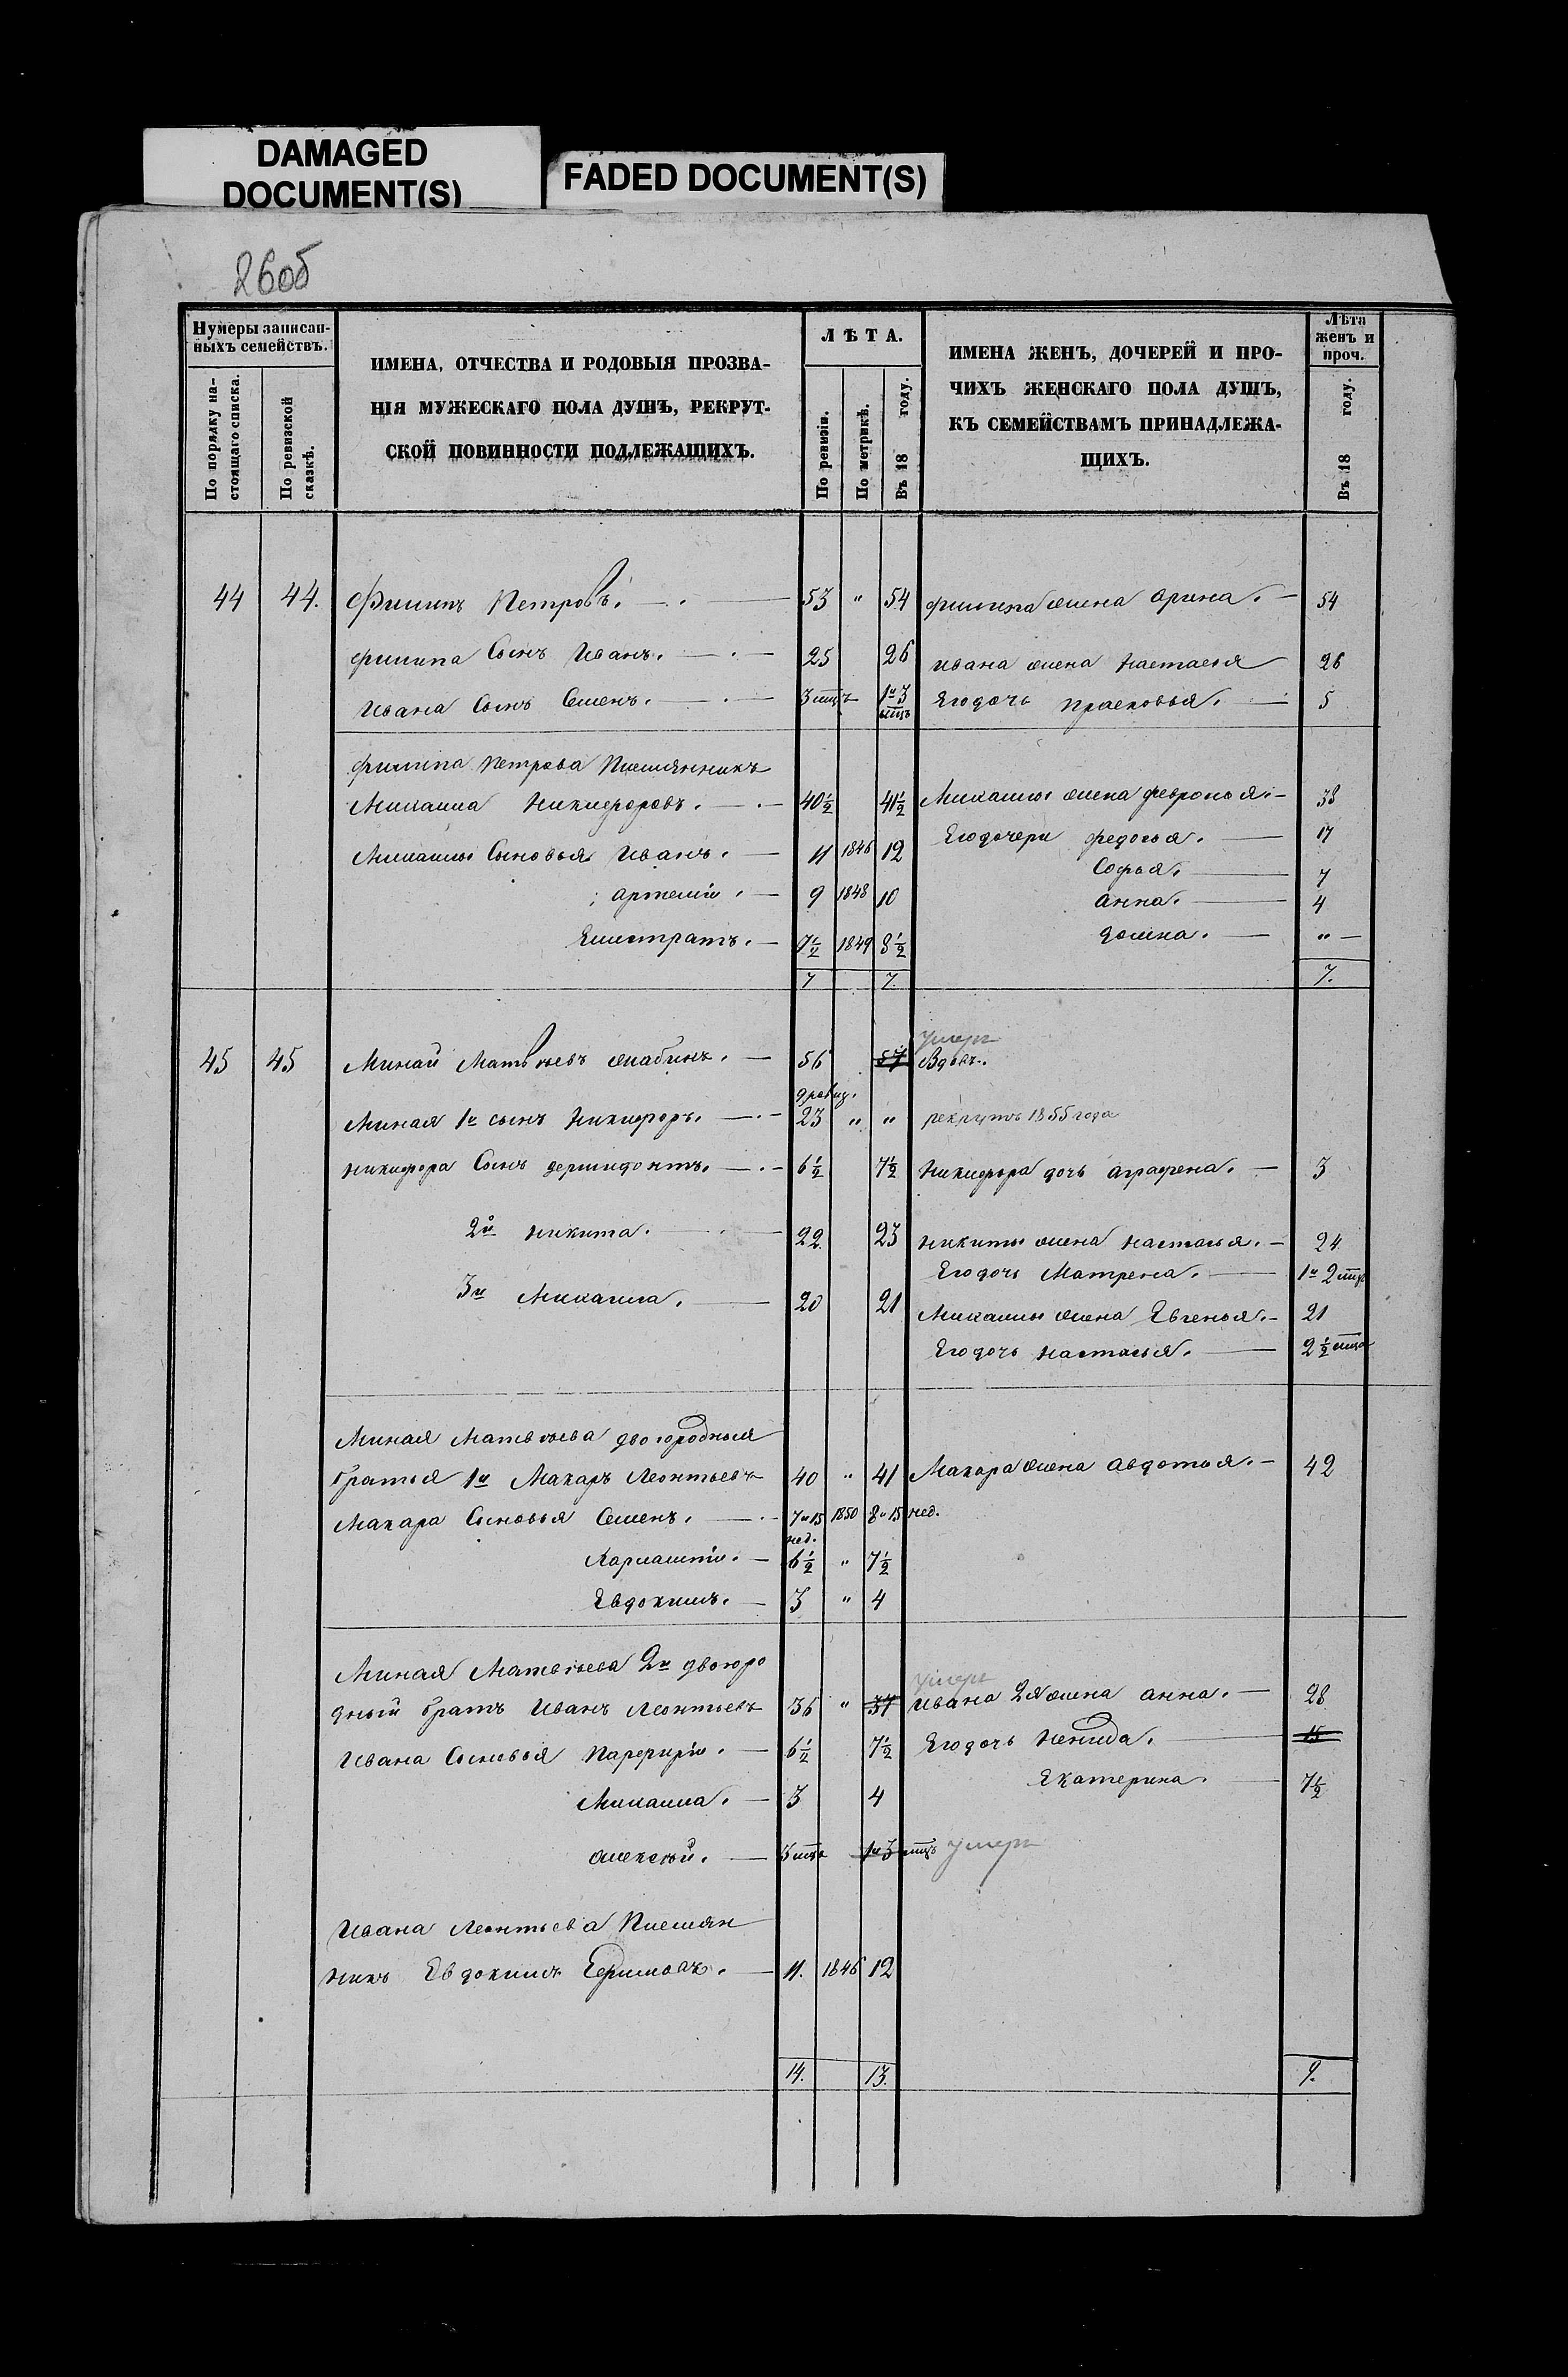 DAMAGED
DOCUMENT(S)
FADED DOCUMENT(S)
26об
Нумеры записан-
ныхъ семействъ.
По порядку на-
стоящаго списка.
По ревизской
сказкѣ.
ИМЕНА, ОТЧЕСТВА И РОДОВЫЯ ПРОЗВА-
НІЯ МУЖЕСКАГО ПОЛА ДУШЪ, РЕКРУТ-
СКОЙ ПОВИННОСТИ ПОДЛЕЖАЩИХЪ.
ЛѢТА.
По ревизіи.
По метрикѣ.
Въ 18 году.
ИМЕНА ЖЕНЪ, ДОЧЕРЕЙ И ПРО-
ЧИХЪ ЖЕНСКАГО ПОЛА ДУШЪ,
КЪ СЕМЕЙСТВАМЪ ПРИНАДЛЕЖА-
ЩИХЪ.
Лѣта
женъ и
проч.
Въ 18 году.
44 44. Филипъ Петровъ. 53 " 54 филипа жена Орина. 54
филипа Сынъ Иванъ. 25 26 ивана жена Настасья 26
Ивана Сынъ Семенъ. 3 мцъ 1 и 3 мцъ Его дочь прасковья. 5
филипа Петрова Племянникъ
Микаила Никифоровъ. 40½ 41½ Микаилы жена февронья. 38
Микаилы Сыновья Иванъ. 11 1846 12 Его дочери федосья. 17
Софья. 7
артемій. 9 1848 10 анна. 4
Елистратъ. 7½ 1849 8½ домна. "
7 7. 7.
45 45 Минай Матвѣевъ жабинъ. 56 57 умеръ
Вдовъ.
Миная 1й сынъ Никифоръ. 23 " " рекрутъ 1855 года
никифора Сынъ дермидонтъ. 6½ 7½ Никифора дочь аграфена. 3
2й никита. 22. 23 никиты жена настасья. 24
Его дочь Матрена. 1 и 2 мцъ
3й Микаила. 20 21 Микаилы жена Евгенья. 21
Его дочь настасья. 2½ мца
Миная Матвѣева двоюродныя
братья 1й Макаръ Леонтьевъ 40 " 41 Макара жена авдотья. 42
Макара Сыновья Семенъ. 7 и 15 нед. 1850 8 и 15 нед.
Харлампій. 6½ " 7½
Евдокимъ. 3 " 4
Миная Матвѣева 2й двоюро
дный братъ Иванъ Леонтьевъ 36 " 37 умеръ
ивана 2я жена анна. 28
Ивана Сыновья Парфирій. 6½ 7½ Его дочь Ненида. 15
Екатерина. 7½
Микаила. 3 4
алексѣй. 3 мца 1 и 3 мцъ умеръ
Ивана Леонтьева Племян
никъ Евдокимъ Ефимовъ. 11. 1846 12
14. 13. 9.